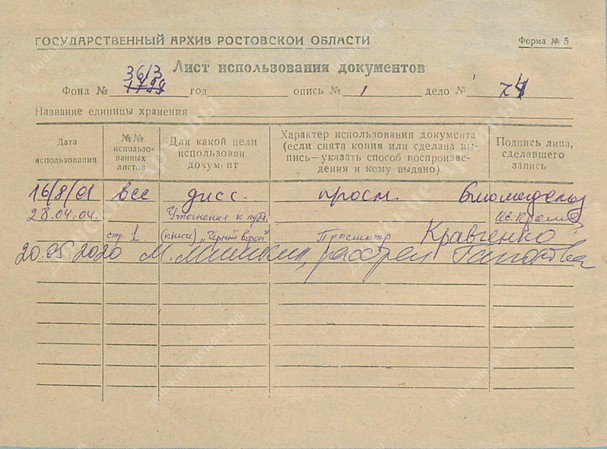 ГОСУДАРСТВЕННЫЙ АРХИВ РОСТОВСКОЙ ОБЛАСТИ
Форма № 5
Лист использования документов
3613
Фонд № год опись № 1 дело № 74
Название единицы хранения
Дата использования
№№ использованных листов
Для какой цели использован документ
Характер использования документа (если снята копия или сделана выпись—указать способ воспроизведения и кому выдано)
Подпись лица, сделавшего запись
16/8/01 все дисс. просм.
28.04.04. Уточнения к
стр. 1 (книги) „Чёрный ворон" Просмотр Кравченко
20.05.2020 М.